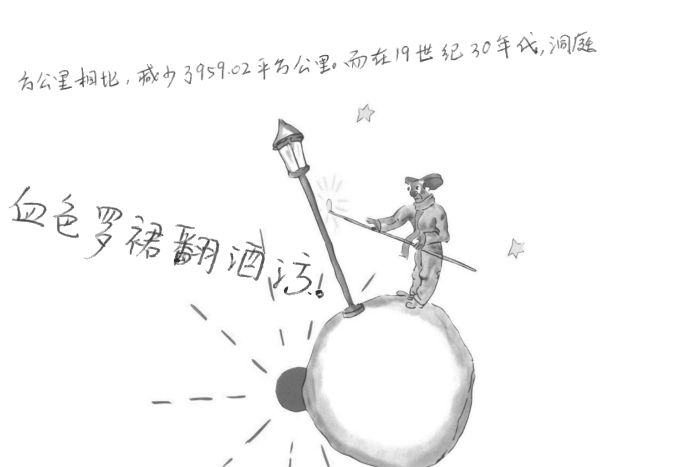 方公里相比，减少了3959.02平方公里。而在19世纪30年代，洞庭
血色罗裙翻酒污。